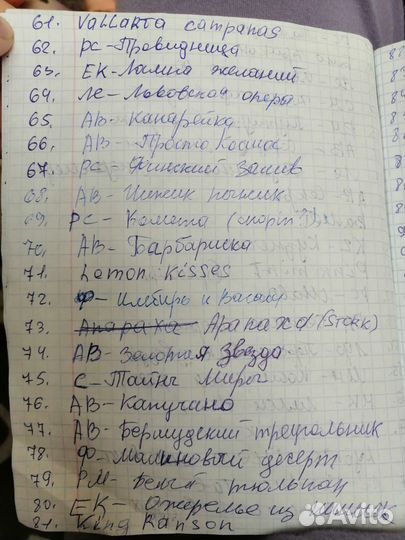 61. Vallarta campanas
62. РС-Провидница
63. ЕК-Лампа желаний
64. ЛЕ-Львовская опера
65. АВ-Канарейка
66. АВ-Просто Космос
67. РС-Финский Залив
68. АВ-Чижик пыжик
69. РС-Комета (спорт
70. АВ-Барбариска
71. Lemon Kisses
72. Ф-Имбирь и Васаби
73. Апараха Арапахо (Stork)
74. АВ-Золотая Звезда
75. С-Тайны Мира
76. АВ-Капучино
77. АВ-Бермудский треугольник
78. Ф-Малиновый десерт
79. РМ-Бенга тюльпан
80. ЕК-Ожерелье из
81. King Ranson
Avito